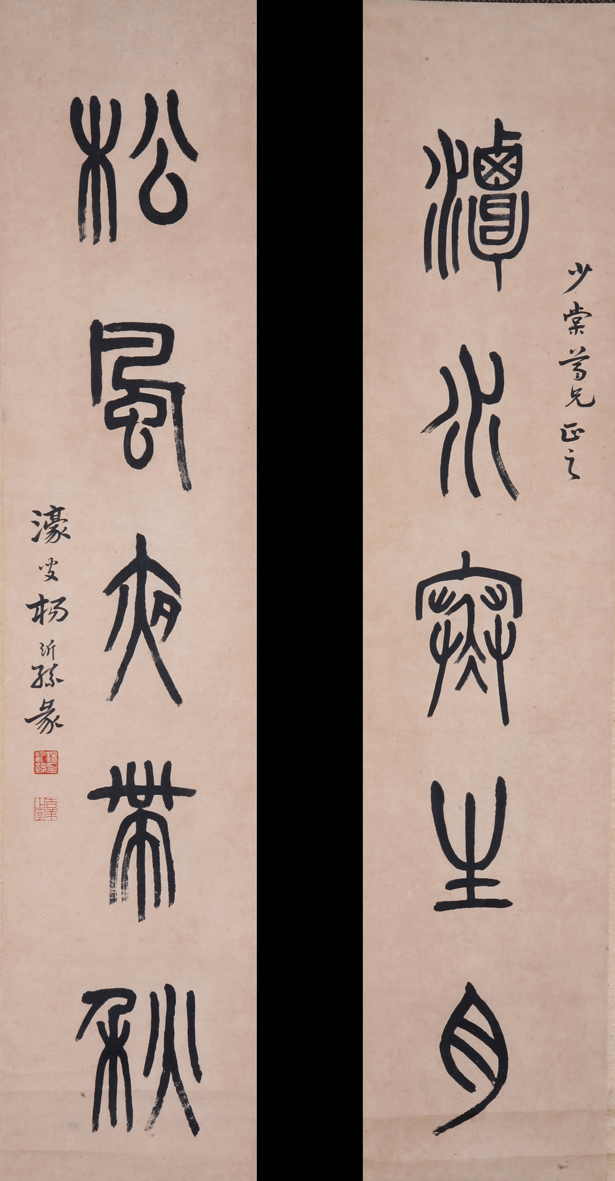 少棠尊兄正之
潭水寒生月
松風夜帶秋
濠叟楊沂孫篆